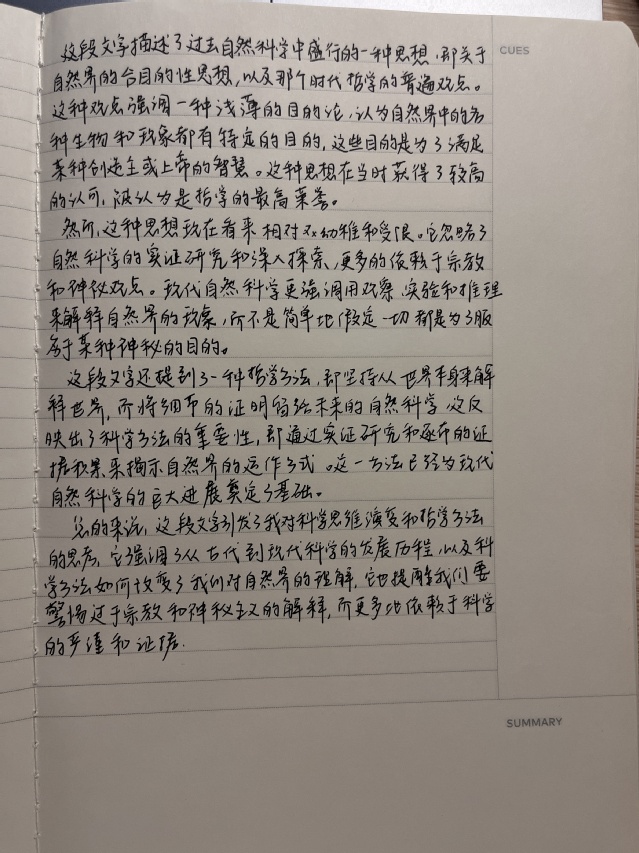 CUES
这段文字描述了过去自然科学中盛行的一种思想，即关于
自然界的合目的性思想，以及那个时代哲学的普遍观点。
这种观点强调一种浅薄的目的论，认为自然界中的各
种生物和现象都有特定的目的，这些目的是为了满足
某种创造主或上帝的智慧。这种思想在当时获得了较高
的认可，被认为是哲学的最高荣誉。
然而，这种思想现在看来相对幼稚和受限。它忽略了
自然科学的实证研究和深入探索，更多的依赖于宗教
和神秘观点。现代自然科学更强调用观察、实验和推理
来解释自然界的现象，而不是简单地假定一切都是为了服
务于某种神秘的目的。
这段文字还提到了一种哲学方法，即坚持从世界本身来解
释世界，而将细节的证明留给未来的自然科学，这反
映出了科学方法的重要性，即通过实证研究和逐布的证
据积累来揭示自然界的运作方式。这一方法已经为现代
自然科学的巨大进展奠定了基础。
总的来说，这段文字引发了我对科学思维演变和哲学方法
的思考，它强调了从古代到现代科学的发展历程，以及科
学方法如何改变了我们对自然界的理解，它也提醒我们要
警惕过于宗教和神秘主义的解释，而更多地依赖于科学
的严谨和证据.
SUMMARY